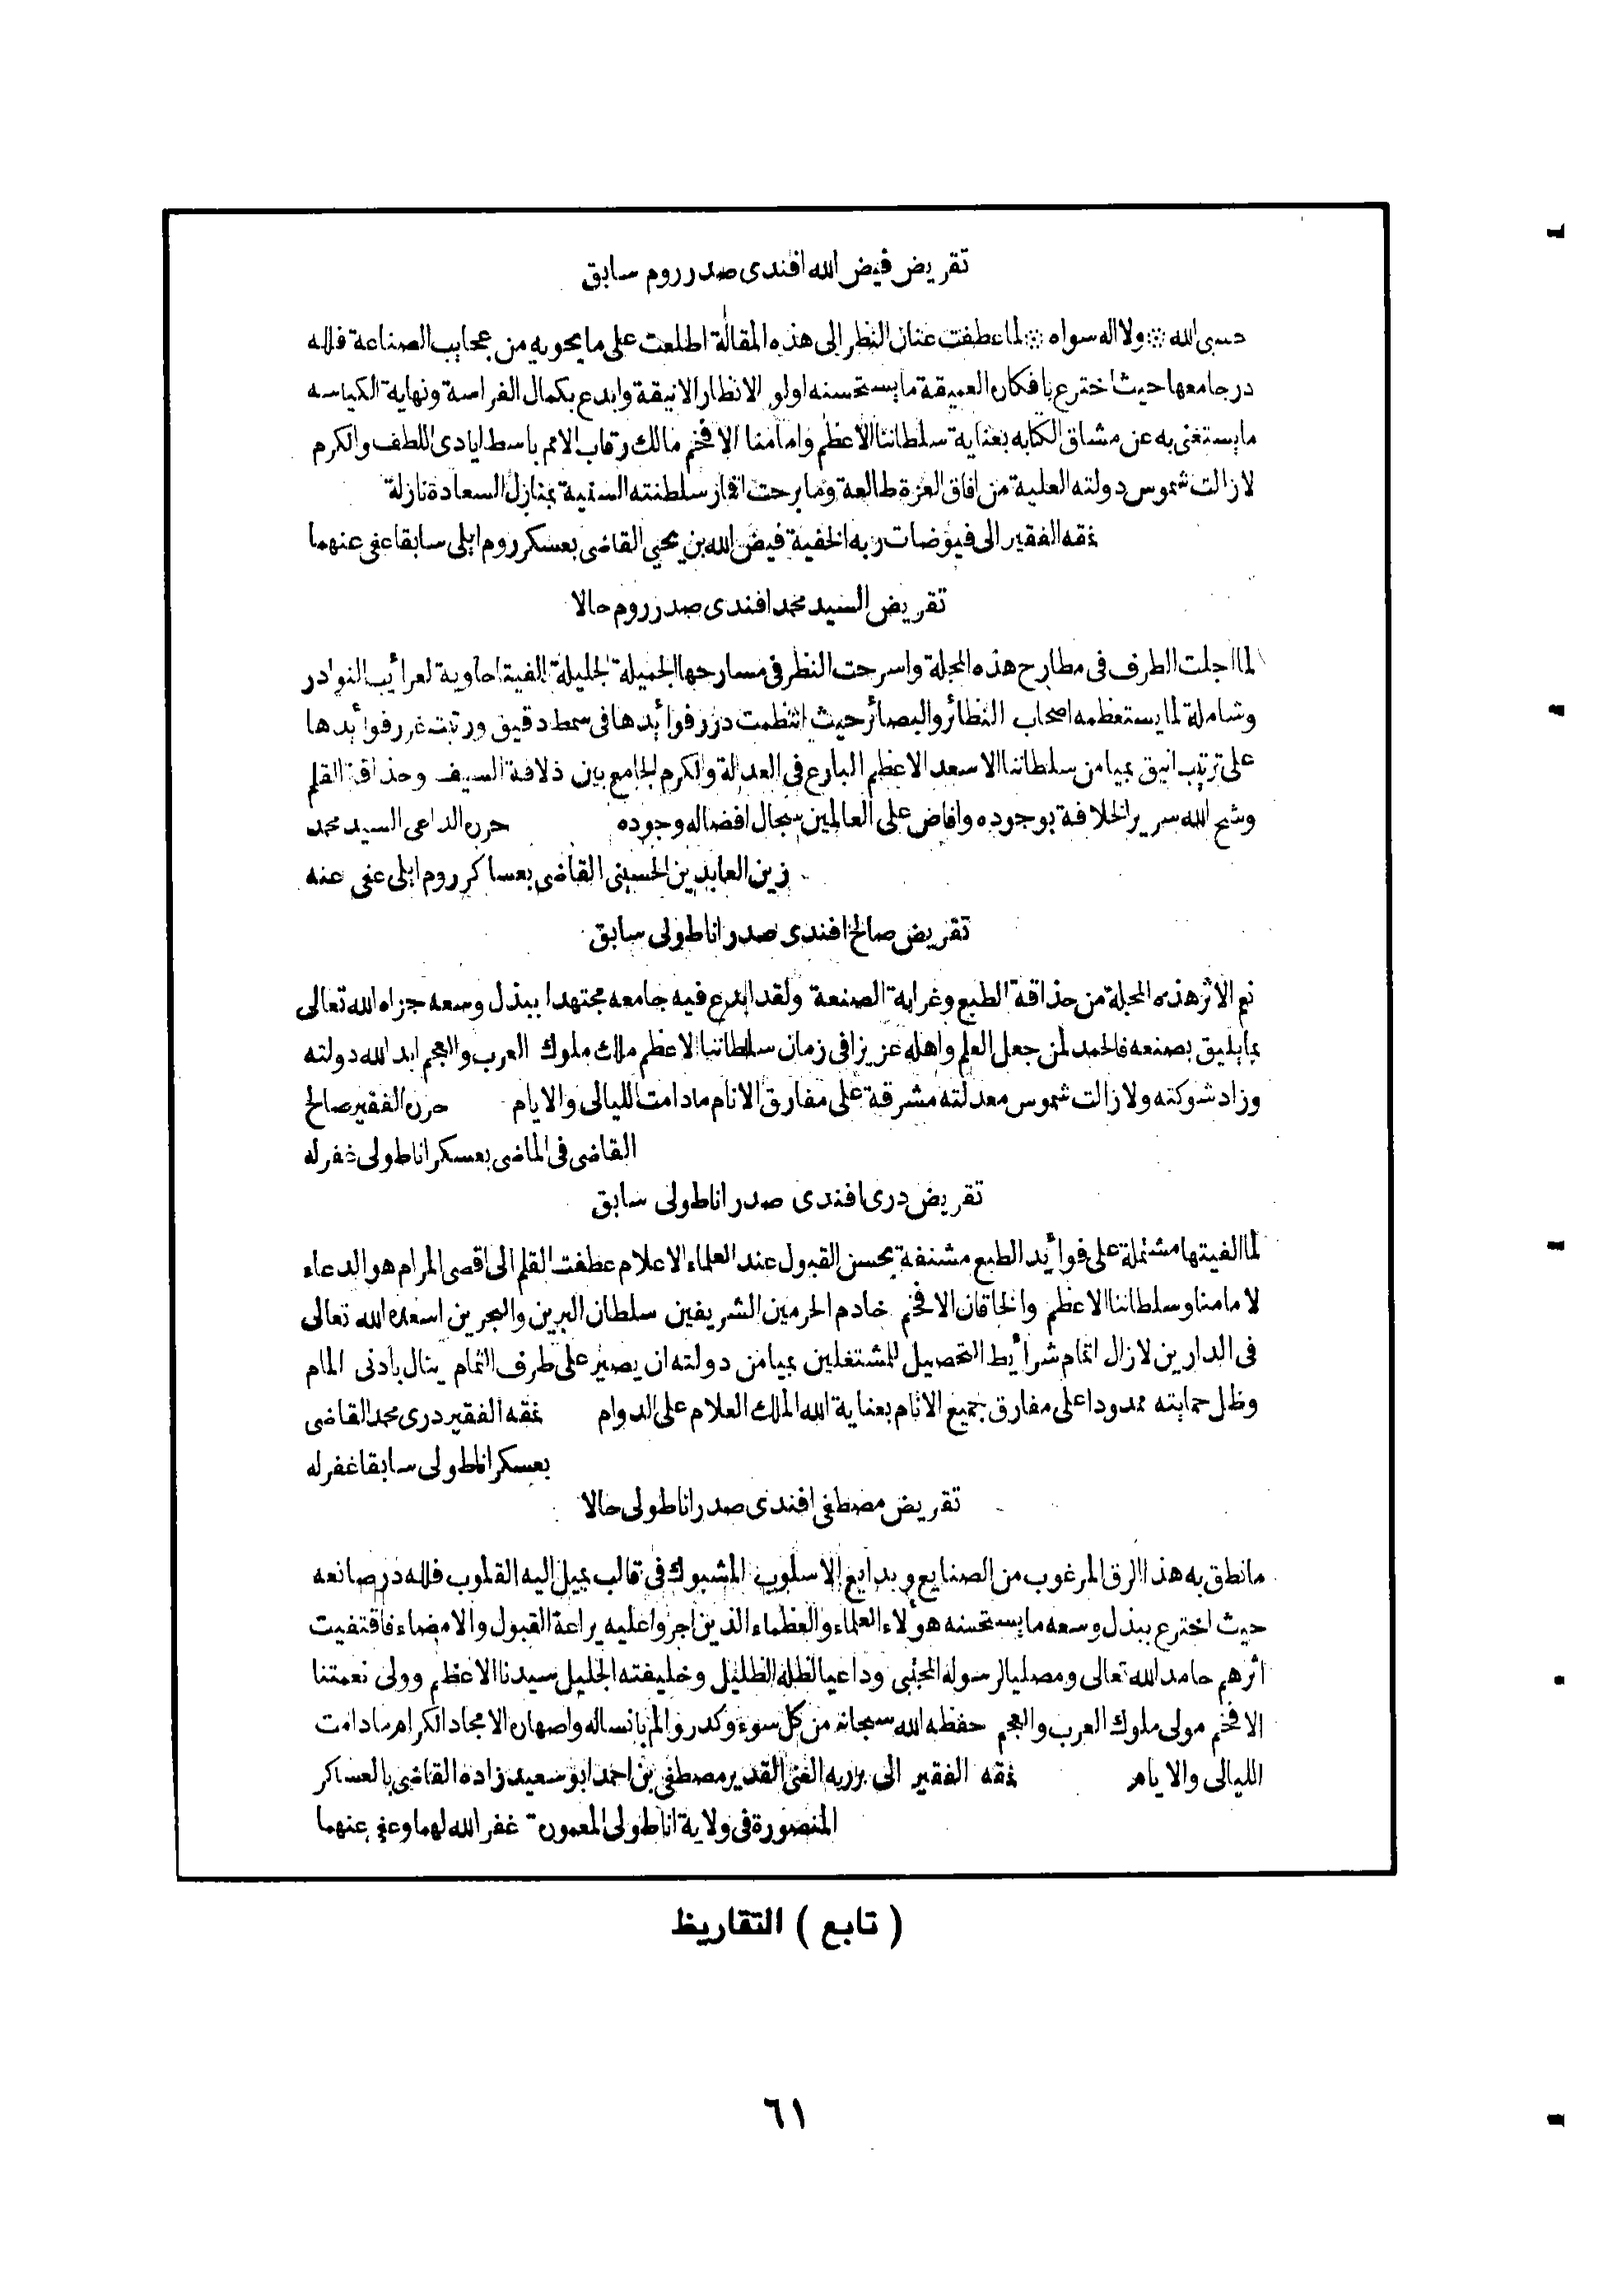 تقريض فيض الله افندى صدر روم سابق
حسبى الله ※ ولا اله سواه ※ لما عطفت عنان النظر الى هذه المقالة اطلعت على ما يحويه من عجايب الصناعة فلله
در جامعها حيث اخترع بافكاره العميقة ما يستحسنه اولو الانظار الانيقة وابدع بكمال الفراسة ونهاية الكياسه
ما يستغنى به عن مشاق الكتابه بعناية سلطاننا الاعظم وامامنا الافخم مالك رقاب الامم باسط ايادى اللطف والكرم
لازالت شموس دولته العلية من افاق العزة طالعة وما برحت اقمار سلطنته السنية بمنازل السعادة نازلة
نمقه الفقير الى فيوضات ربه الخفية فيض الله بن يحيى القاضى بعسكر روم ايلى سابقا عفى عنهما
تقريض السيد محمد افندى صدر روم حالا
لما اجلت الطرف فى مطارح هذه المجلة واسرحت النظر فى مسارحها الجميلة الجليلة الفيتها حاوية لغرائب النوادر
وشاملة لما يستعظمه اصحاب النظائر والبصائر حيث انتظمت درر فوائدها فى سمط دقيق ورتبت غرر فوائدها
على ترتيب انيق بميامن سلطاننا الاسعد الاعظم البارع فى العدالة والكرم الجامع بين ذلاقة السيف وحذاقة القلم
وشح الله سرير الخلافة بوجوده وافاض على العالمين سجال افضاله وجوده حرره الداعى السيد محمد
زين العابدين الحسينى القاضى بعساكر روم ايلى عفى عنه
تقريض صالح افندى صدر اناطولى سابق
نعم الاثر هذه المجلة من حذاقة الطبع وغرابة الصنعة ولقد ابدع فيه جامعه مجتهدا ببذل وسعه جزاه الله تعالى
بما يليق بصنعه فالحمد لمن جعل العلم واهله عزيزا فى زمان سلطاننا الاعظم ملاك ملوك العرب والعجم ابد الله دولته
وزاد شوكته ولا زالت شموس معدلته مشرقة على مفارق الانام ما دامت الليالى والايام حرره الفقير صالح
القاضى فى الماضى بعسكر اناطولى غفر له
تقريض درى افندى صدر اناطولى سابق
لما الفيتها مشتملة على فوائد الطبع مشنفة بحسن القبول عند العلماء الاعلام عطفت القلم الى اقصى المرام هو الدعاء
لامامنا وسلطاننا الاعظم والخاقان الافخم خادم الحرمين الشريفين سلطان البرين والبحرين اسعده الله تعالى
فى الدارين لازال اتمام شرائط التحصيل للمشتغلين بميامن دولته ان يصير على طرف الثمام ينال بادنى المام
وظل حمايته ممدودا على مفارق جميع الانام بعناية الله الملك العلام على الدوام نمقه الفقير درى محمد القاضى
بعسكر اناطولى سابقا غفر له
تقريض مصطفى افندى صدر اناطولى حالا
ما نطق به هذا الرق المرغوب من الصنايع وبدايع الاسلوب المشبوك فى قالب يميل اليه القلوب فلله در صانعه
حيث اخترع ببذل وسعه ما يستحسنه هولاء العلماء والعظماء الذين اجروا عليه يراعة القبول والامضاء فاقتفيت
اثرهم حامدا لله تعالى ومصليا لرسوله المجتبى وداعيا لظله الظليل وخليفته الجليل سيدنا الاعظم وولى نعمتنا
الافخم مولى ملوك العرب والعجم حفظه الله سبحانه من كل سوء وكدر والم بانساله واصهاره الامجاد الكرام ما دامت
الليالى والايام نمقه الفقير الى بر ربه الغنى القدير مصطفى بن احمد ابو سعيد زاده القاضى بالعساكر
المنصورة فى ولاية اناطولى المعمورة غفر الله لهما وعفى عنهما
( تابع ) التقاريظ
٦١